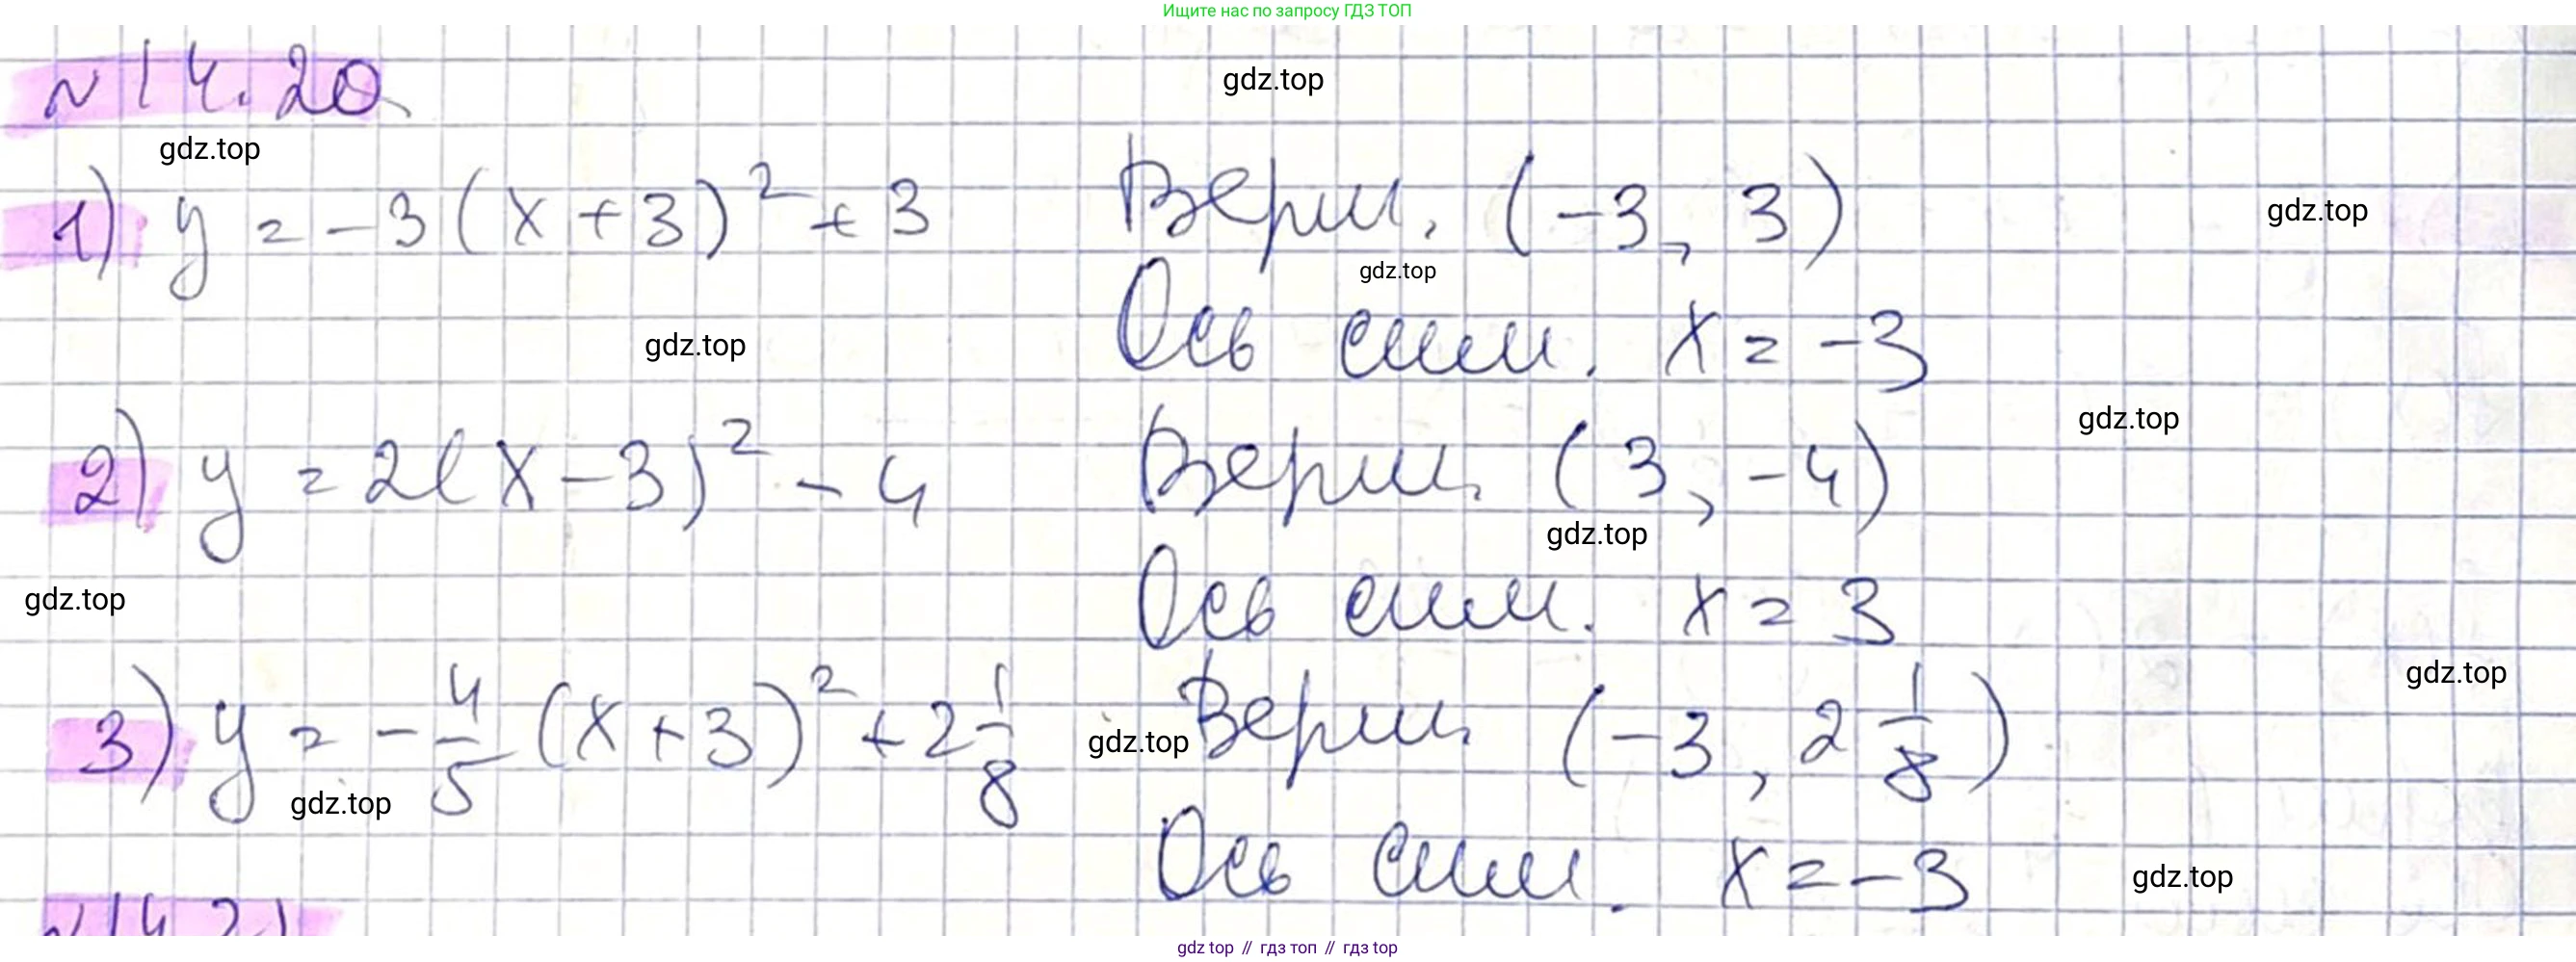 Ищите нас по запросу ГДЗ ТОП
№14.20
gdz.top
gdz.top
1) y = -3(x+3)² + 3 Верш. (-3, 3)
gdz.top
gdz.top
Ось сим. x = -3
gdz.top
2) y = 2(x-3)² - 4 Верш. (3, -4)
gdz.top
gdz.top
Ось сим. x = 3
gdz.top
gdz.top
3) y = -4/5 (x+3)² + 2 1/8 Верш. (-3, 2 1/8)
gdz.top
gdz.top
gdz.top
Ось сим. x = -3
gdz.top
№14.21
gdz top // гдз топ // гдз top